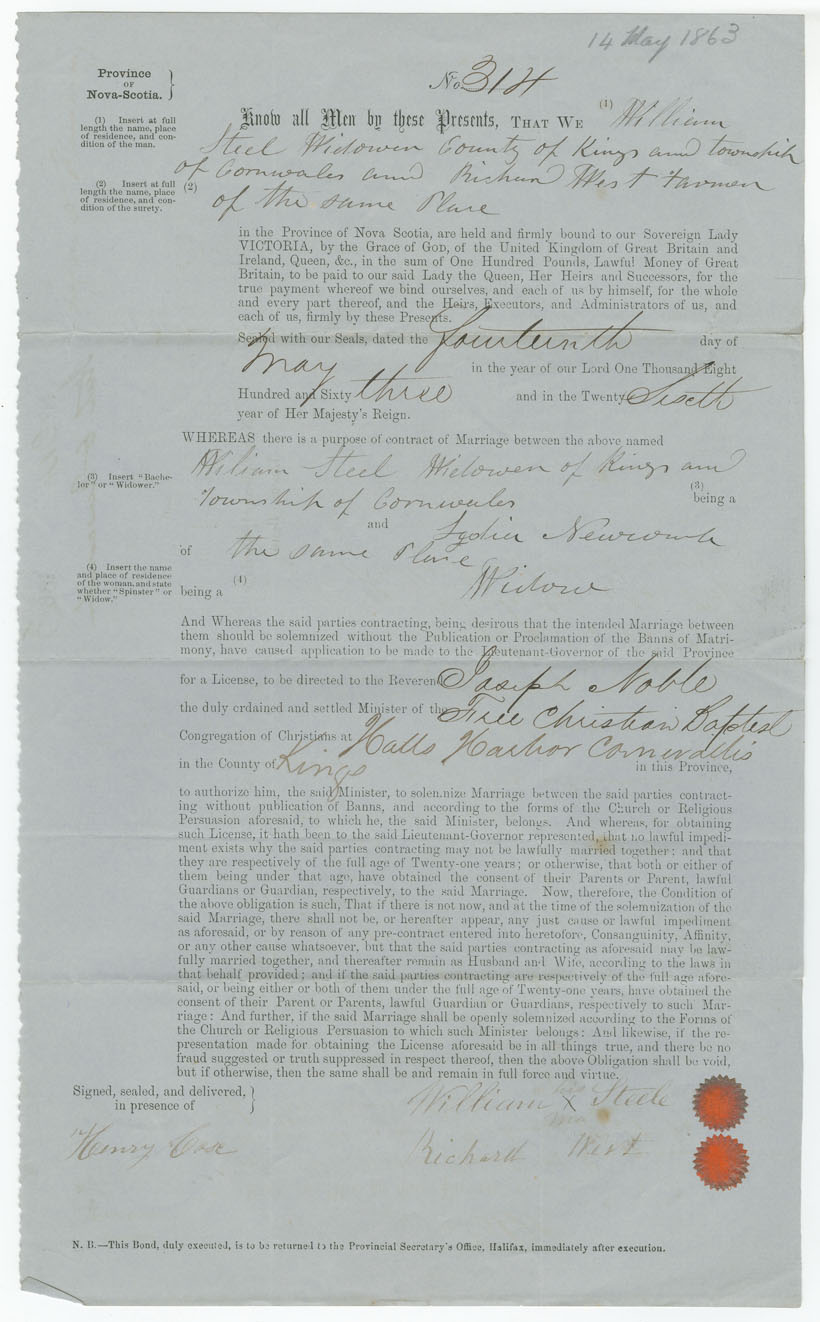 14 May 1863
Province
OF
Nova-Scotia.
No. 314
(1) Insert at full
length the name, place
of residence, and con-
dition of the man.
Know all Men by these Presents, THAT WE (1) William
Steel Widower County of Kings and township
of Cornwales and Richard West Farmer
(2) Insert at full
length the name, place
of residence, and con-
dition of the surety.
(2)
of the same Place
in the Province of Nova Scotia, are held and firmly bound to our Sovereign Lady
VICTORIA, by the Grace of GOD, of the United Kingdom of Great Britain and
Ireland, Queen, &c., in the sum of One Hundred Pounds, Lawful Money of Great
Britain, to be paid to our said Lady the Queen, Her Heirs and Successors, for the
true payment whereof we bind ourselves, and each of us by himself, for the whole
and every part thereof, and the Heirs, Executors, and Administrators of us, and
each of us, firmly by these Presents.
Sealed with our Seals, dated the fourteenth day of
May in the year of our Lord One Thousand Eight
Hundred and Sixty three and in the Twenty Sixth
year of Her Majesty's Reign.
WHEREAS there is a purpose of contract of Marriage between the above named
William Steel Widower of Kings and
(3) Insert "Bache-
lor" or "Widower."
Township of Cornwales (3) being a
and Lydia Newcomb
of the same Place
(4) Insert the name
and place of residence
of the woman, and state
whether "Spinster" or
"Widow."
(4)
being a Widow
And Whereas the said parties contracting, being desirous that the intended Marriage between
them should be solemnized without the Publication or Proclamation of the Banns of Matri-
mony, have caused application to be made to the Lieutenant-Governor of the said Province
for a License, to be directed to the Reverend Joseph Noble
the duly ordained and settled Minister of the Free Christian Baptest
Congregation of Christians at Halls Harbor Cornwallis
in the County of Kings in this Province,
to authorize him, the said Minister, to solemnize Marriage between the said parties contract-
ing without publication of Banns, and according to the forms of the Church or Religious
Persuasion aforesaid, to which he, the said Minister, belongs. And whereas, for obtaining
such License, it hath been to the said Lieutenant-Governor represented, that no lawful impedi-
ment exists why the said parties contracting may not be lawfully married together; and that
they are respectively of the full age of Twenty-one years; or otherwise, that both or either of
them being under that age, have obtained the consent of their Parents or Parent, lawful
Guardians or Guardian, respectively, to the said Marriage. Now, therefore, the Condition of
the above obligation is such, That if there is not now, and at the time of the solemnization of the
said Marriage, there shall not be, or hereafter appear, any just cause or lawful impediment
as aforesaid, or by reason of any pre-contract entered into heretofore, Consanguinity, Affinity,
or any other cause whatsoever, but that the said parties contracting as aforesaid may be law-
fully married together, and thereafter remain as Husband and Wife, according to the laws in
that behalf provided; and if the said parties contracting are respectively of the full age afore-
said, or being either or both of them under the full age of Twenty-one years, have obtained the
consent of their Parent or Parents, lawful Guardian or Guardians, respectively to such Mar-
riage: And further, if the said Marriage shall be openly solemnized according to the Forms of
the Church or Religious Persuasion to which such Minister belongs: And likewise, if the re-
presentation made for obtaining the License aforesaid be in all things true, and there be no
fraud suggested or truth suppressed in respect thereof, then the above Obligation shall be void,
but if otherwise, then the same shall be and remain in full force and virtue.
Signed, sealed, and delivered,
in presence of
his
William X Steele
Henry Cose
Richard West
N. B.—This Bond, duly executed, is to be returned to the Provincial Secretary's Office, Halifax, immediately after execution.